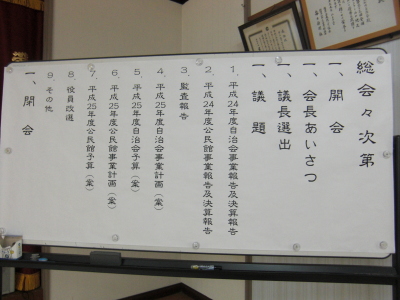 総会々次第
一、開会
一、会長あいさつ
一、議長選出
一、議題
1．平成24年度自治会事業報告及決算報告
2．平成24年度公民館事業報告及決算報告
3．監査報告
4．平成25年度自治会事業計画（案）
5．平成25年度自治会予算（案）
6．平成25年度公民館事業計画（案）
7．平成25年度公民館予算（案）
8．役員改選
9．その他
一、閉会